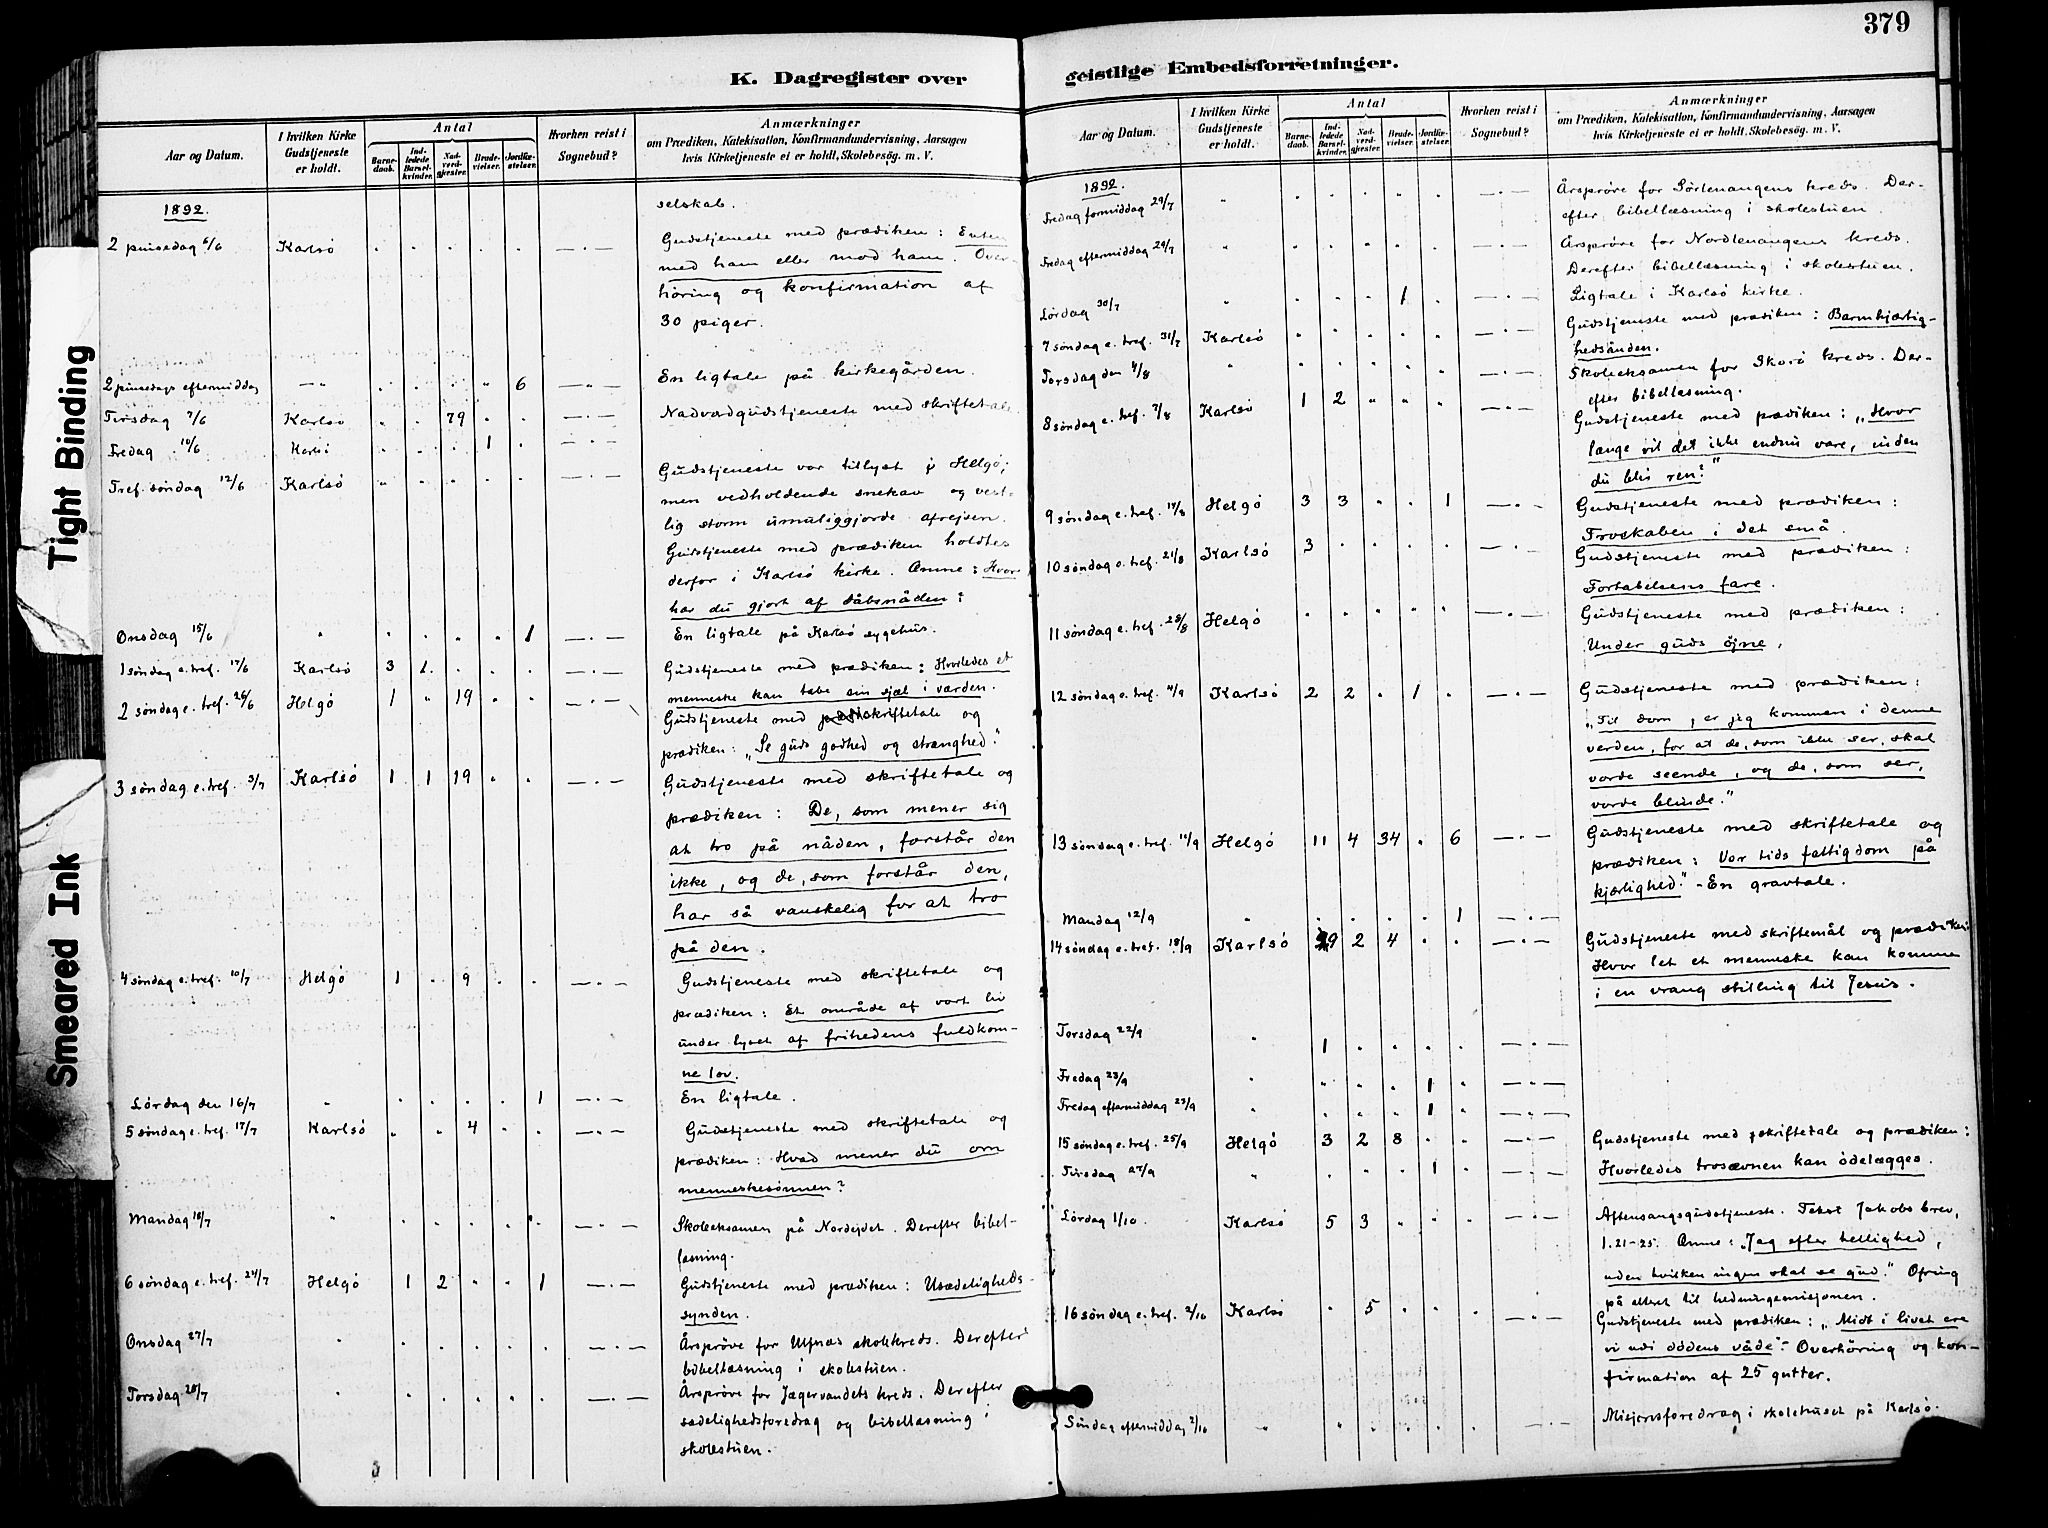 379
K. Dagregister over
Aar og Datum.
I hvilken Kirke Gudstjeneste er holdt.
Antal
Barnedaab.
Indledede Barselkvinder.
Nadverdgjæster.
Brudevielser.
Jordfæstelser.
Hvorhen reist i Sognebud?
Anmærkninger
om Prædiken, Katekisation, Konfirmandundervisning, Aarsagen
hvis Kirketjeneste ei er holdt, Skolebesög. m. V.
1892.
selskab.
2 pinsedag 6/6 Karlsö " " " " " — " — Gudstjeneste med prædiken: Enten
med ham eller mod ham. Over-
höring og konfirmation af
30 piger.
2 pinsedags eftermiddag — " " " " " 6 — " — En ligtale på kirkegården.
Tirsdag 7/6 Karlsö " " 79 " " — " — Nadverdgudstjeneste med skriftetale.
Fredag 10/6 Karlsö " " " 1 " — " —
Tref. söndag 12/6 Karlsö " " " " " — " — Gudstjeneste var tillyst på Helgö;
men vedholdende snekav og vest-
lig storm umuliggjorde afrejsen.
Gudstjeneste med prædiken holdtes
derfor i Karlsö kirke. Emne: Hvor
har du gjort af dåbsnåden?
Onsdag 15/6 " " " " " 1 — " — En ligtale på Karlsö sygehus.
1 söndag e. tref. 19/6 Karlsö 3 1 " " " — " — Gudstjeneste med prædiken: Hvorledes et
menneske kan tabe sin sjæl i verden.
2 söndag e. tref. 26/6 Helgö 1 " 19 " " — " — Gudstjeneste med skriftetale og
prædiken: "Se guds godhed og strænghed."
3 söndag e. tref. 3/7 Karlsö 1 1 19 " " — " — Gudstjeneste med skriftetale og
prædiken: De, som mener sig
at tro på nåden, forstår den
ikke, og de, som forstår den,
har så vanskelig for at tro
på den.
4 söndag e. tref. 10/7 Helgö 1 " 9 " " — " — Gudstjeneste med skriftetale og
prædiken: Et område af vort liv
under lyset af frihedens fuldkom-
ne lov.
Lördag den 16/7 " " " " " 1 — " — En ligtale.
5 söndag e. tref. 17/7 Karlsö " " 4 " " — " — Gudstjeneste med skriftetale og
prædiken: Hvad mener du om
menneskesönnen?
Mandag 18/7 " " " " " " — " — Skoleeksamen på Nordejdet. Derefter bibel-
læsning.
6 söndag e. tref. 24/7 Helgö 1 2 " " 1 — " — Gudstjeneste med prædiken: Usædeligheds-
synden.
Onsdag 27/7 " " " " " " — " — Årspröve for Ulfnes skolekreds. Derefter
bibellæsning i skolestuen.
Torsdag 28/7 " " " " " " — " — Årspröve for Jægervandets kreds. Derefter
sædelighedsforedrag og bibellæsning i
skolestuen.
geistlige Embedsforretninger.
Aar og Datum.
I hvilken Kirke Gudstjeneste er holdt.
Antal
Barnedaab.
Indledede Barselkvinder.
Nadverdgjæster.
Brudevielser.
Jordfæstelser.
Hvorhen reist i Sognebud?
Anmærkninger
om Prædiken, Katekisation, Konfirmandundervisning, Aarsagen
hvis Kirketjeneste ei er holdt, Skolebesög. m. V.
1892.
Fredag formiddag 29/7 " " " " " " — " — Årspröve for Sörlenangens kreds. Der-
efter bibellæsning i skolestuen.
Fredag eftermiddag 29/7 " " " " " " — " — Årspröve for Nordlenangens kreds.
Derefter bibellæsning i skolestuen.
Lördag 30/7 " " " " 1 " — " — Ligtale i Karlsö kirke.
7 söndag e. tref. 31/7 Karlsö " " " " " — " — Gudstjeneste med prædiken: Barmhjærtig-
hedsånden.
Torsdag den 4/8 " " " " " " — " — Skoleeksamen for Skorö kreds. Der-
efter bibellæsning.
8 söndag e. tref. 7/8 Karlsö 1 2 " " " — " — Gudstjeneste med prædiken: "Hvor
længe vil det ikke endnu vare, inden
du blir ren?"
9 söndag e. tref. 14/8 Helgö 3 3 " " 1 — " — Gudstjeneste med prædiken:
Troskaben i det små.
10 söndag e. tref. 21/8 Karlsö 3 " " " " — " — Gudstjeneste med prædiken:
Fortabelsens fare.
11 söndag e. tref. 28/8 Helgö " " " " " — " — Gudstjeneste med prædiken:
Under guds öjne.
12 söndag e. tref. 4/9 Karlsö 2 2 " 1 " — " — Gudstjeneste med prædiken:
"Til dom, er jeg kommen i denne
verden, for at de, som ikke ser, skal
vorde seende, og de, som ser,
vorde blinde."
13 söndag e. tref. 11/9 Helgö 11 4 34 " 6 — " — Gudstjeneste med skriftetale og
prædiken: Vor tids fattigdom på
kjærlighed." - En gravtale.
Mandag 12/9 " " " " " 1 — " —
14 söndag e. tref. 18/9 Karlsö 9 2 4 " " — " — Gudstjeneste med skriftemål og prædiken:
Hvor let et menneske kan komme
i en vrang stilling til Jesus.
Torsdag 22/9 " 1 " " " " — " —
Fredag 23/9 " " " " 1 " — " —
Fredag eftermiddag 23/9 " " " " 1 " — " —
15 söndag e. tref. 25/9 Helgö 3 2 8 " " — " — Gudstjeneste med skriftetale og prædiken:
Hvorledes trosævnen kan ödelægges.
Tirsdag 27/9 " " " " 1 " — " —
Lördag 1/10 Karlsö 5 3 " " " — " — Aftensangsgudstjeneste. Tekst Jakobs brev,
1.21-25. Emne: "Jag efter hellighed,
uden hvilken ingen skal se gud." Ofring
på alteret til hedningemisjonen.
16 söndag e. tref. 2/10 Karlsö " 5 " " " — " — Gudstjeneste med prædiken: "Midt i livet ere
vi udi dödens våde". - Overhöring og kon-
firmation af 25 gutter.
Söndag eftermiddag 2/10 " " " " " " — " — Misjonsforedrag i skolehuset på Karlsö.
Tight Binding
Smeared Ink